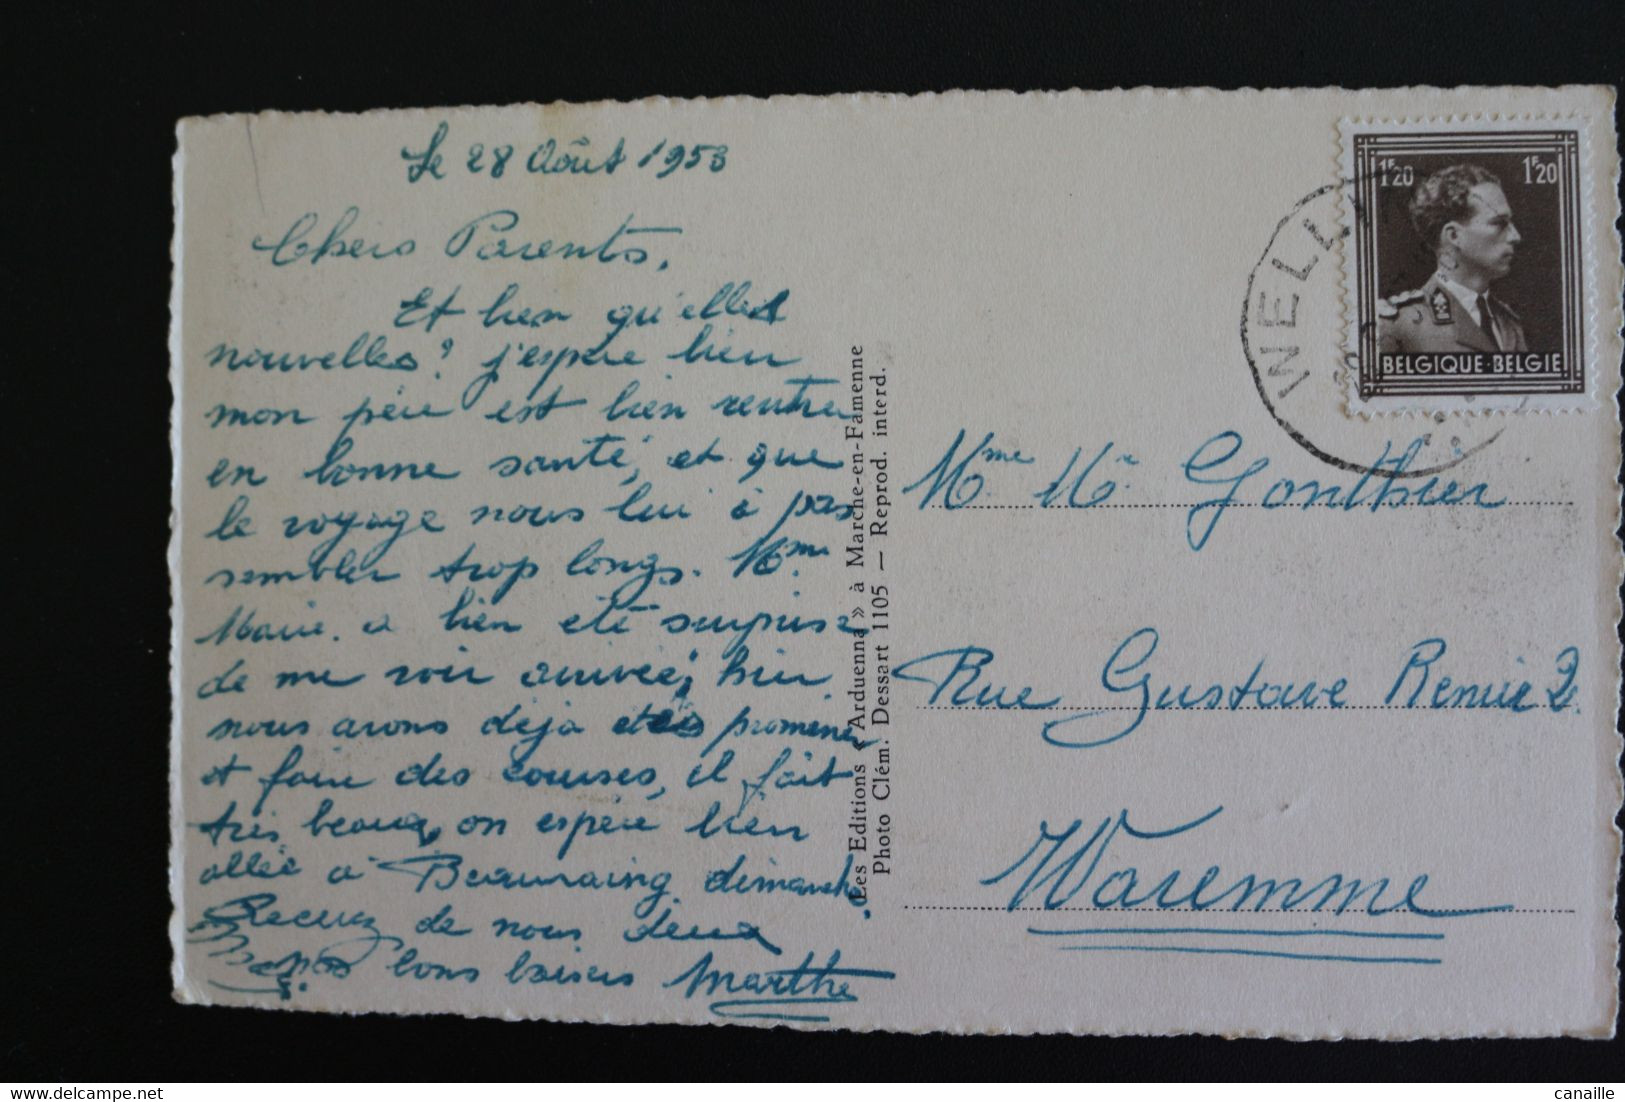 Le 28 Août 1953
Chers Parents,
Et bien qu'elles
nouvelles? j'espère bien
mon père est bien rentrer
en bonne santé, et que
le voyage nous lui à pas
sembler trop longs. Mme
Marie. a bien été surprise
de me voir arrivée, hier
nous avons déjà etés promener
et faire des courses, il fait
très beaux, on espère bien
allée à Beauraing dimanche
Recevez de nous deux
bons baisers Marthe
Les Editions « Arduenna » à Marche-en-Famenne
Photo Clém. Dessart 1105 — Reprod. interd.
1F20 1F20
BELGIQUE·BELGIE
WELLIN
Mme Mr Gonthier
Rue Gustave Renier 2
Waremme
delcampe.net
canaille